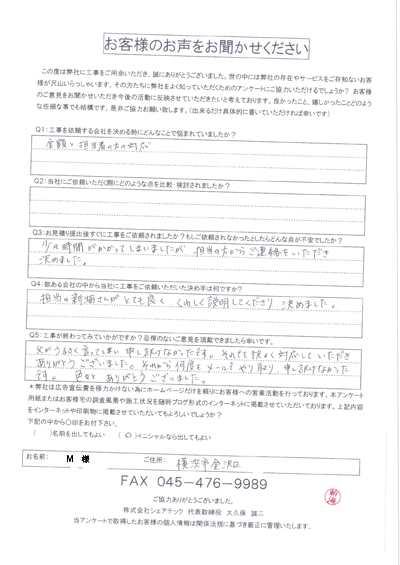 お客様のお声をお聞かせください
この度は弊社に工事をご用命いただき、誠にありがとうございました。世の中には弊社の存在やサービスをご存知ないお客
様が沢山いらっしゃいます。その方たちに弊社をよく知っていただくためのアンケートにご協力いただけるでしょうか？ お客様
のご意見をお聞かせいただき今後の活動に反映させていただきたいと考えております。良かったこと、嬉しかったことどのよう
な些細な事でも結構です。是非ご協力お願い致します。（出来るだけ具体的に書いていただければ幸いです）
Q1：工事を依頼する会社を決める時にどんなことで悩まれていましたか？
金額と担当者の方の対応
Q2：当社にご依頼いただく際にどのような点を比較・検討されましたか？
Q3：お見積り提出後すぐに工事をご依頼されましたか？もしご依頼されなかったとしたらどんな点が不安でしたか？
少し時間がかかってしまいましたが、担当の方からご連絡をいただき
決めました。
Q4：数ある会社の中から当社に工事をご依頼いただいた決め手は何ですか？
担当の新海さんがとても良く、くわしく説明してくださり 決めました。
Q5：工事が終わってみていかがですか？忌憚のないご意見を頂戴できましたら幸いです。
父がうるさく言ってしまい 申し訳けなかったです。それでも快よく対応していただき
ありがとうございました。それから何度もメールでやり取り、申し訳けなかった
です。色々と ありがとうございました。
＊弊社は広告宣伝費を極力かけない為にホームページだけを頼りにお客様への営業活動を行っております。本アンケート
用紙またはお客様宅の調査風景や施工状況を随時ブログ形式のインターネットに掲載させていただいております。上記内容
をインターネットや印刷物に掲載させていただいてもよろしいでしょうか？
下記の中から〇印をお付下さい。
（　）名前を出してもよい （〇）イニシャルなら出してもよい
お名前： M 様 ご住所： 横浜市金沢区
FAX 045-476-9989
ご協力ありがとうございました。
新海
株式会社シェアテック 代表取締役 大久保 誠二
当アンケートで取得したお客様の個人情報は関係法規に基づき厳正に管理いたします。